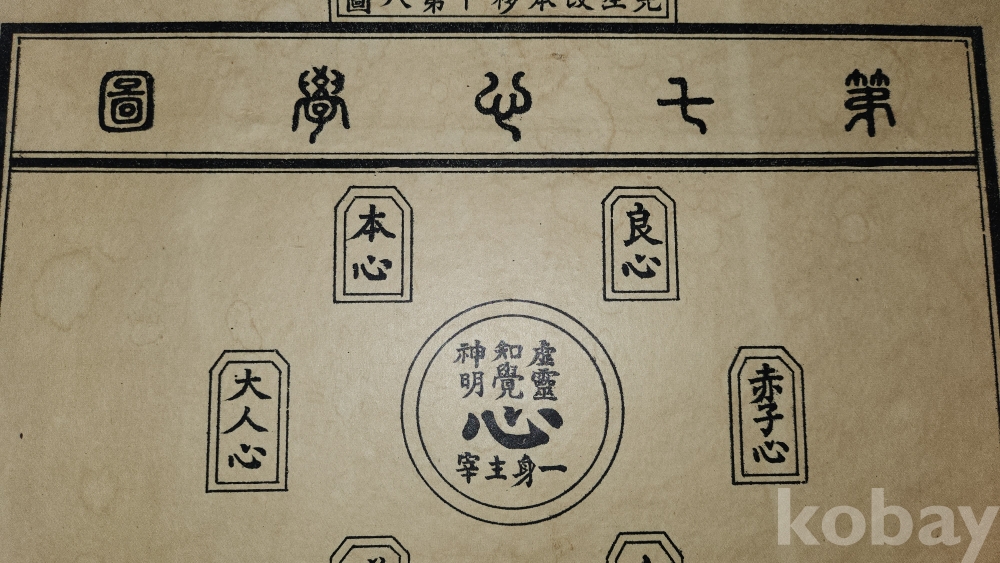 第七心學圖
良心
本心
虛靈
知覺
神明
心
一身主宰
赤子心
大人心
kobay